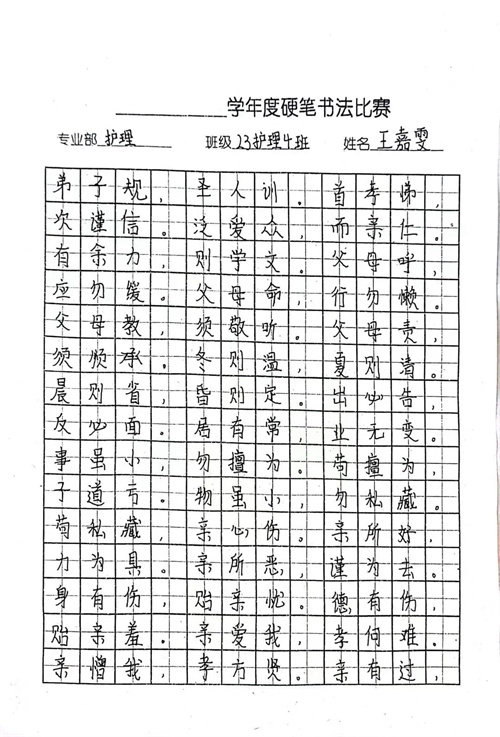 __________学年度硬笔书法比赛
专业部 护理 班级 23护理4班 姓名 王嘉雯
弟子规,圣人训。首孝悌,
次谨信。泛爱众,而亲仁。
有余力,则学文。父母呼,
应勿缓。父母命,行勿懒。
父母教,须敬听。父母责,
须顺承。冬则温,夏则清。
晨则省,昏则定。出必告,
反必面。居有常,业无变。
事虽小,勿擅为。苟擅为,
子道亏。物虽小,勿私藏。
苟私藏,亲心伤。亲所好,
力为具。亲所恶,谨为去。
身有伤,贻亲忧。德有伤,
贻亲羞。亲爱我,孝何难。
亲憎我,孝方贤。亲有过,